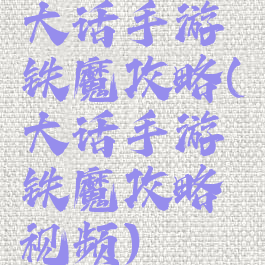 大话手游
铁魔攻略(
大话手游
铁魔攻略
视频)